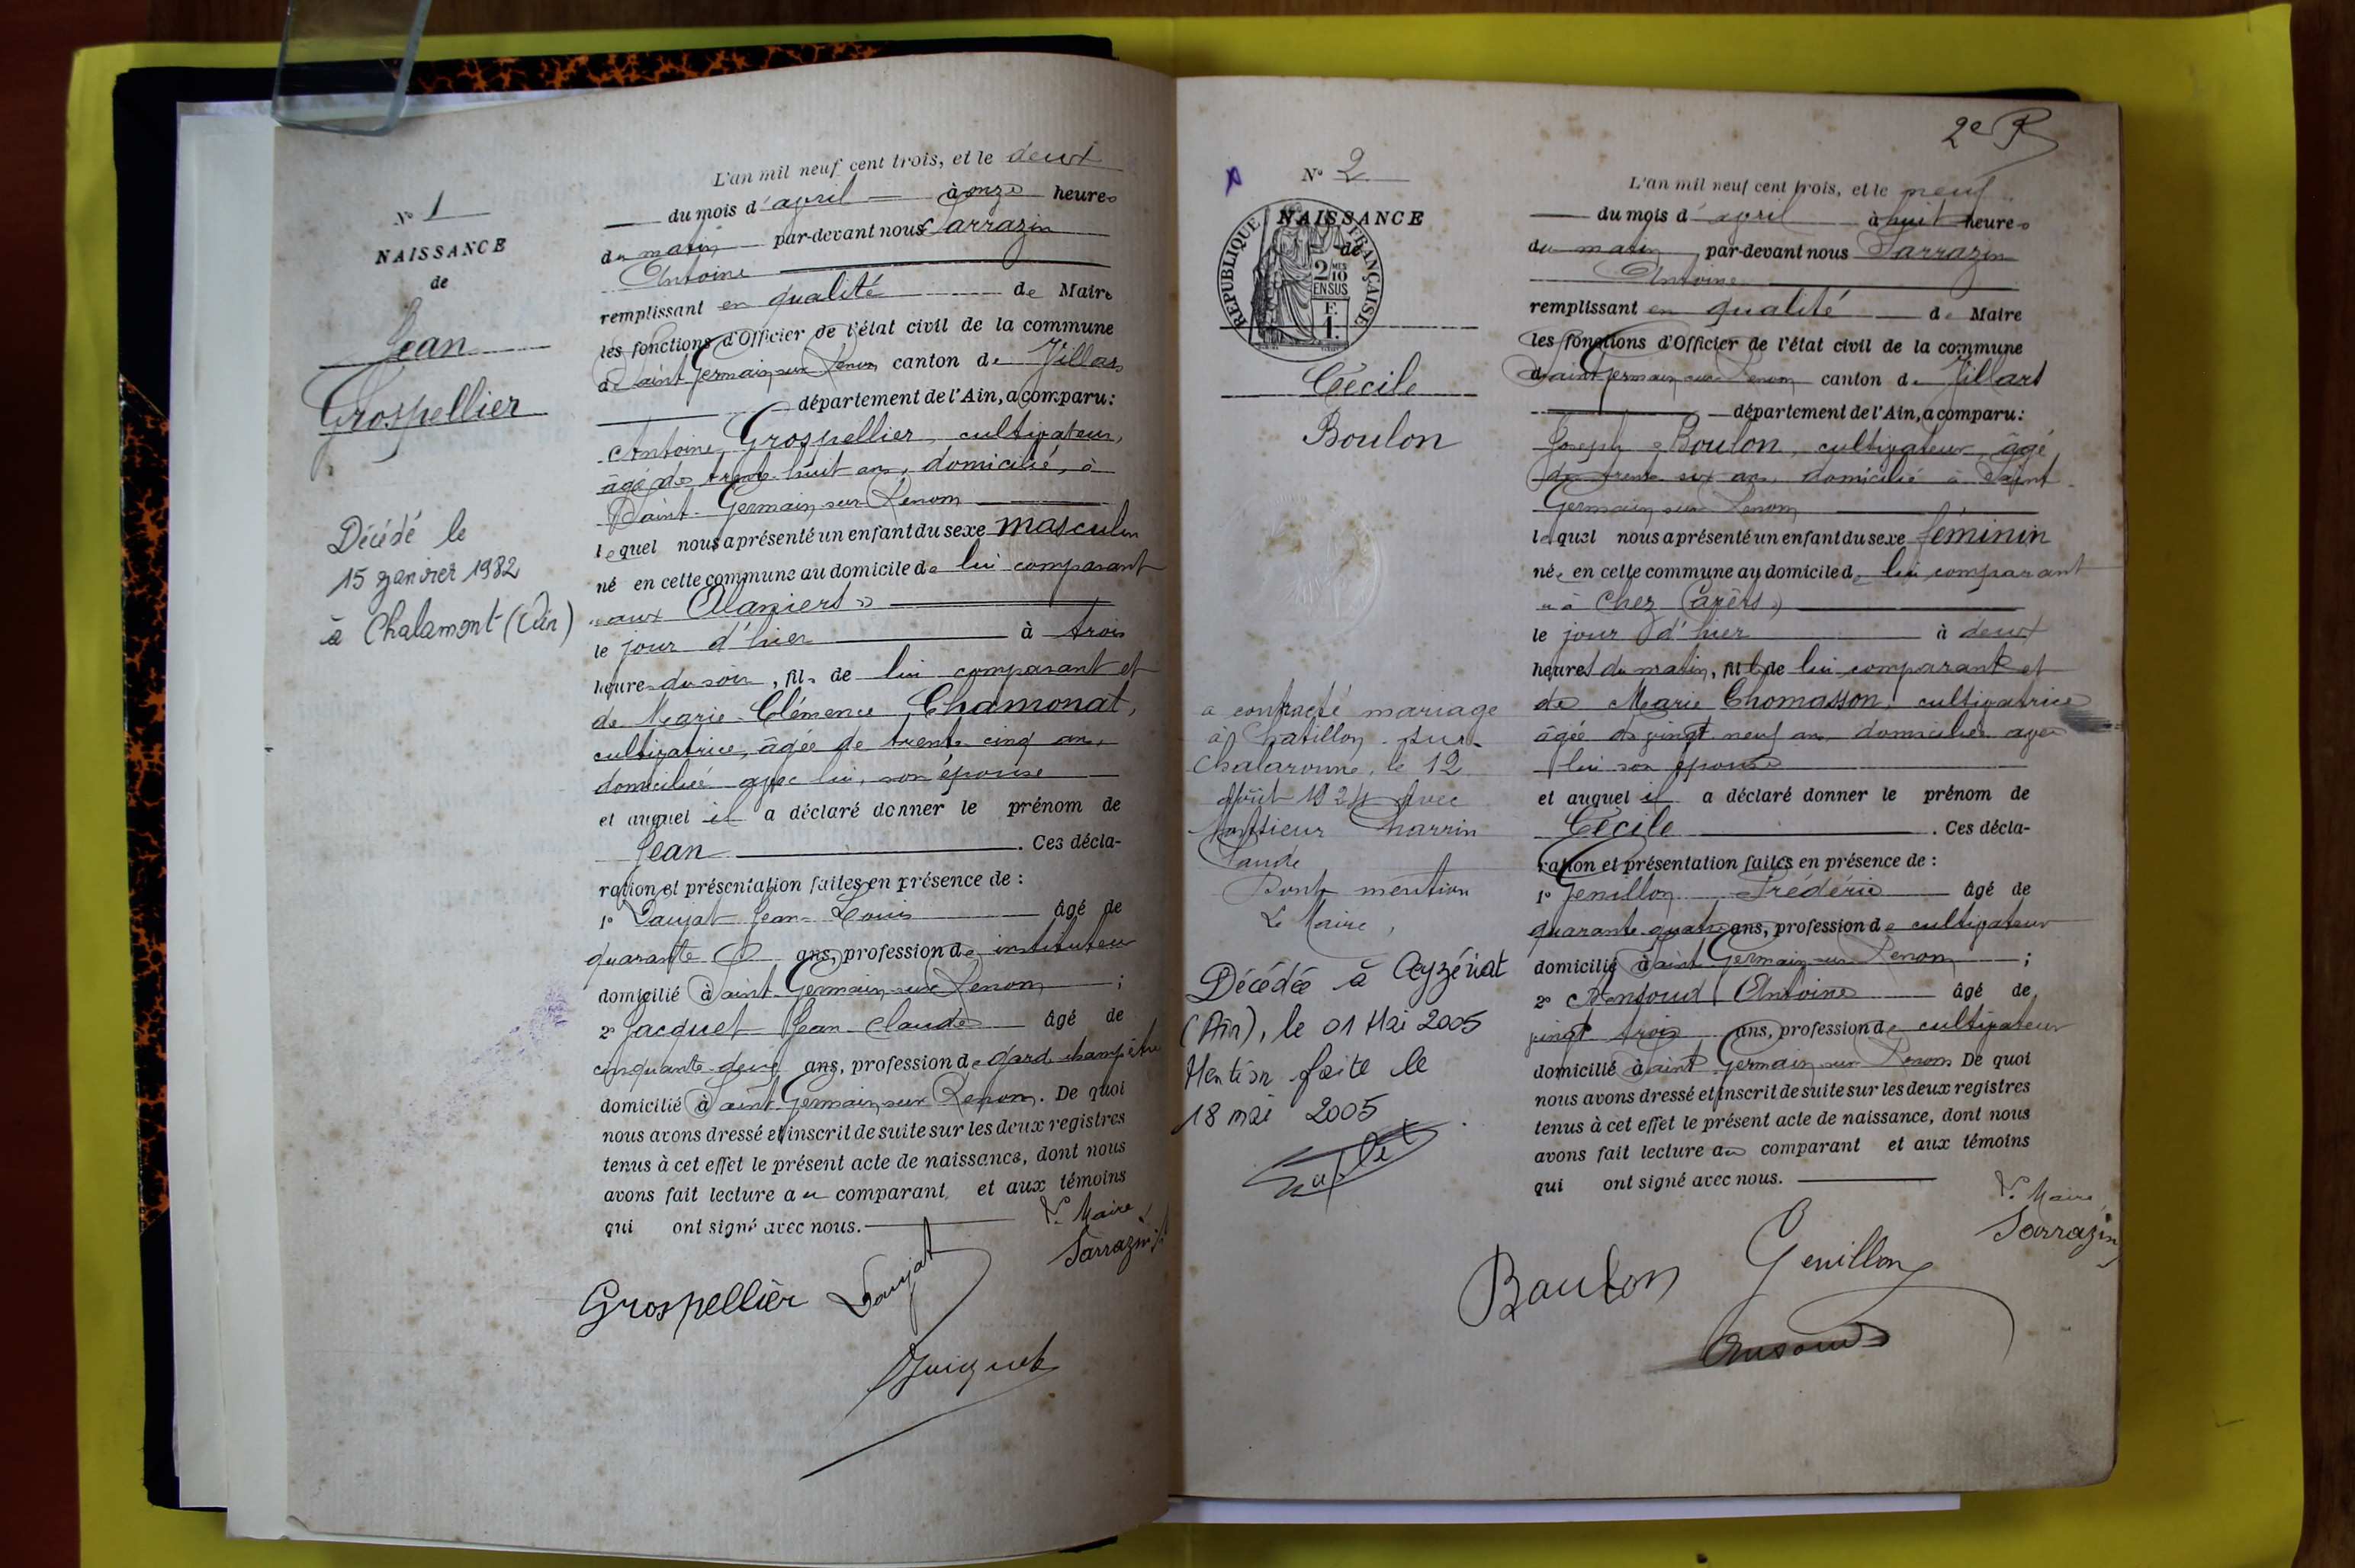 N° 1
NAISSANCE
de
Jean
Grospellier
Décédé le
15 janvier 1982
à Chalamont (Ain)
L'an mil neuf cent trois, et le deux
du mois d'avril à onze heures
du matin par-devant nous Sarrazin
Antoine
remplissant en qualité de Maire
les fonctions d'Officier de l'état civil de la commune
de Saint Germain sur Renom canton de Villars
département de l'Ain, a comparu:
Antoine Grospellier, cultivateur,
âgé de trente huit ans, domicilié, à
Saint-Germain sur Renom
lequel nous a présenté un enfant du sexe masculin
né en cette commune au domicile de lui comparant
"aux Alaniers"
le jour d'hier à trois
heures du soir, fils de lui comparant et
de Marie-Clémence Chamonat,
cultivatrice, âgée de trente cinq ans,
domiciliée avec lui, son épouse
et auquel il a déclaré donner le prénom de
Jean. Ces décla-
ration et présentation faites en présence de:
1° Jean-Louis âgé de
quarante ans, profession de instituteur
domicilié à Saint Germain sur Renom;
2° Jacquet Jean Claude âgé de
cinquante deux ans, profession de garde champêtre
domicilié à Saint Germain sur Renom. De quoi
nous avons dressé et inscrit de suite sur les deux registres
tenus à cet effet le présent acte de naissance, dont nous
avons fait lecture au comparant et aux témoins
qui ont signé avec nous.
Le Maire,
Sarrazin
Grospellièr
2e R
N° 2
NAISSANCE
de
REPUBLIQUE FRANÇAISE
2/10 MES
EN SUS
F.
1.
Cécile
Boulon
a contracté mariage
à Chatillon-sur-
Chalaronne, le 12
Août 1924 avec
Monsieur Charrin
Claude
Dont mention
Le Maire,
Décédée à Ceyzériat
(Ain), le 01 Mai 2005
Mention faite le
18 mai 2005
L'an mil neuf cent trois, et le neuf
du mois d'avril à huit heures
du matin par-devant nous Sarrazin
Antoine
remplissant en qualité de Maire
les fonctions d'Officier de l'état civil de la commune
de Saint Germain sur Renom canton de Villars
département de l'Ain, a comparu:
Joseph Boulon, cultivateur, âgé
de trente six ans, domicilié à Saint
Germain sur Renom
lequel nous a présenté un enfant du sexe féminin
née en cette commune au domicile de lui comparant
"à Chez
le jour d'hier à deux
heures du matin, fille de lui comparant et
de Marie Thomasson, cultivatrice
âgée de vingt neuf ans domiciliée avec
lui son épouse
et auquel il a déclaré donner le prénom de
Cécile. Ces décla-
ration et présentation faites en présence de:
1° Genillon Frédéric âgé de
quarante quatre ans, profession de cultivateur
domicilié à Saint Germain sur Renom;
2° Antoine âgé de
vingt trois ans, profession de cultivateur
domicilié à Saint Germain sur Renom De quoi
nous avons dressé et inscrit de suite sur les deux registres
tenus à cet effet le présent acte de naissance, dont nous
avons fait lecture au comparant et aux témoins
qui ont signé avec nous.
Le Maire,
Sarrazin
Boulon Genillon